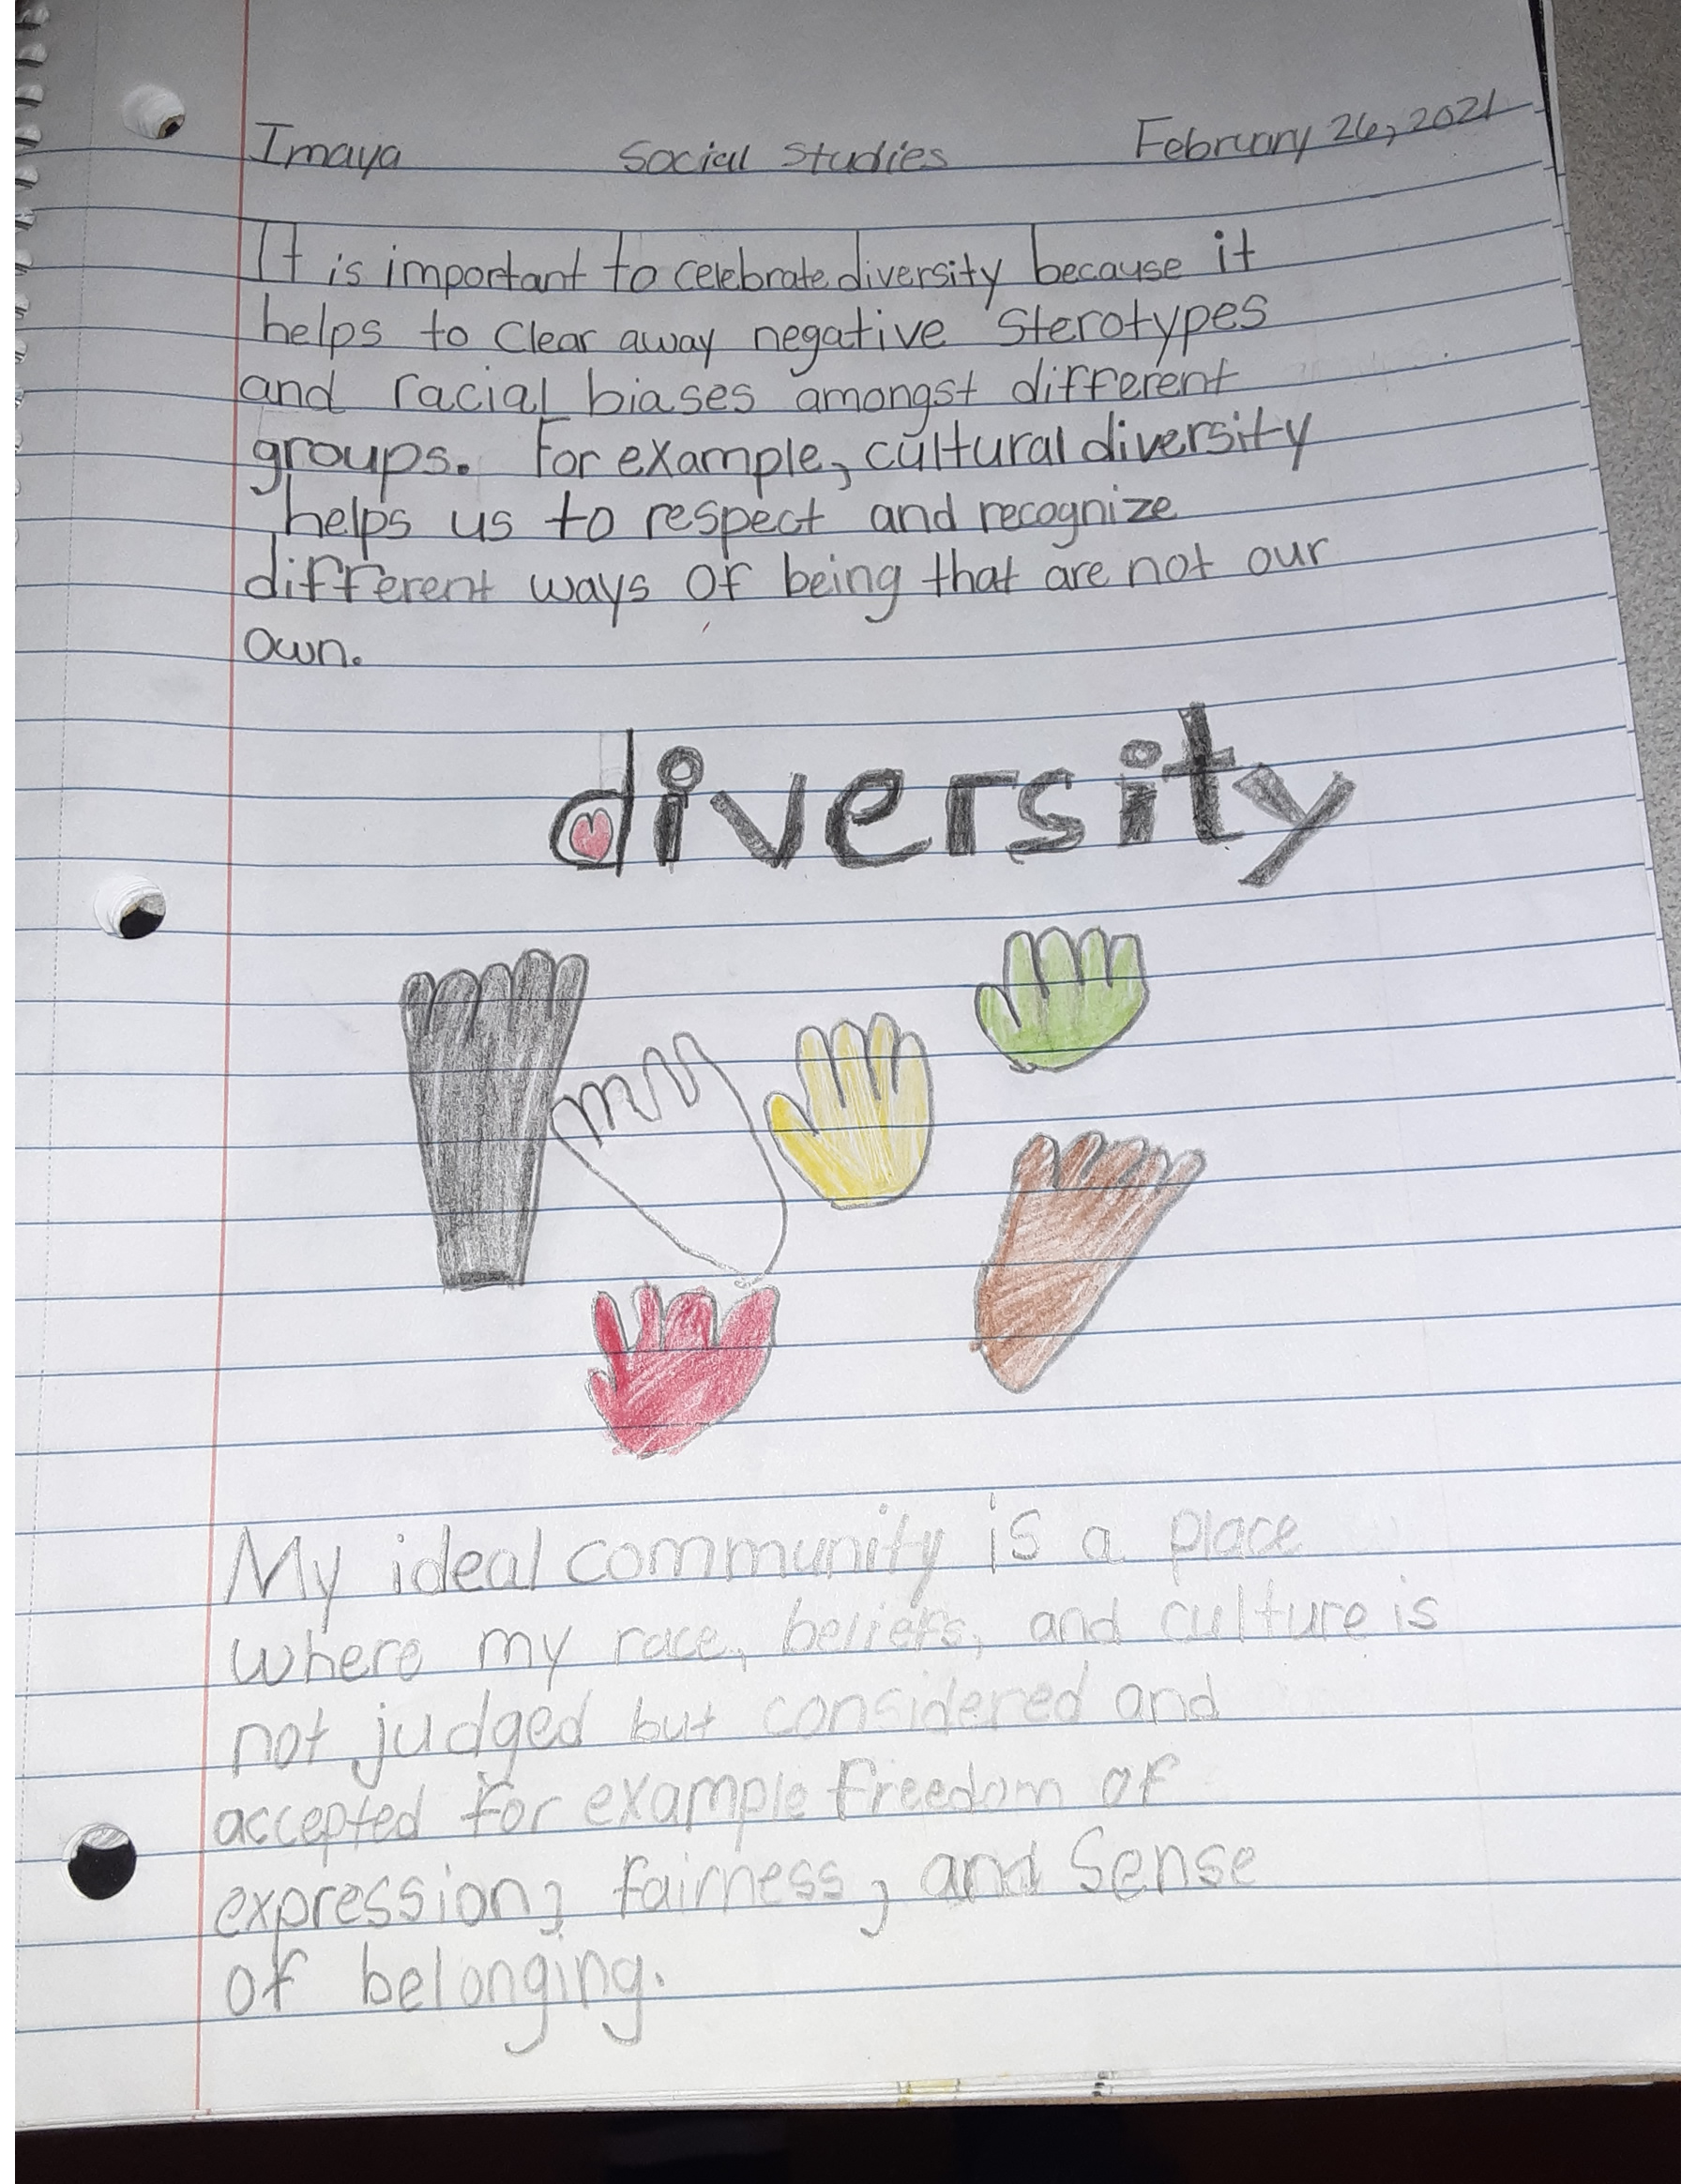 Imaya Social Studies February 26, 2021
It is important to celebrate diversity because it
helps to clear away negative sterotypes
and racial biases amongst different
groups. For example, cultural diversity
helps us to respect and recognize
different ways of being that are not our
own.
diversity
My ideal community is a place
where my race, beliefs, and culture is
not judged but considered and
accepted for example freedom of
expression, fairness, and sense
of belonging.